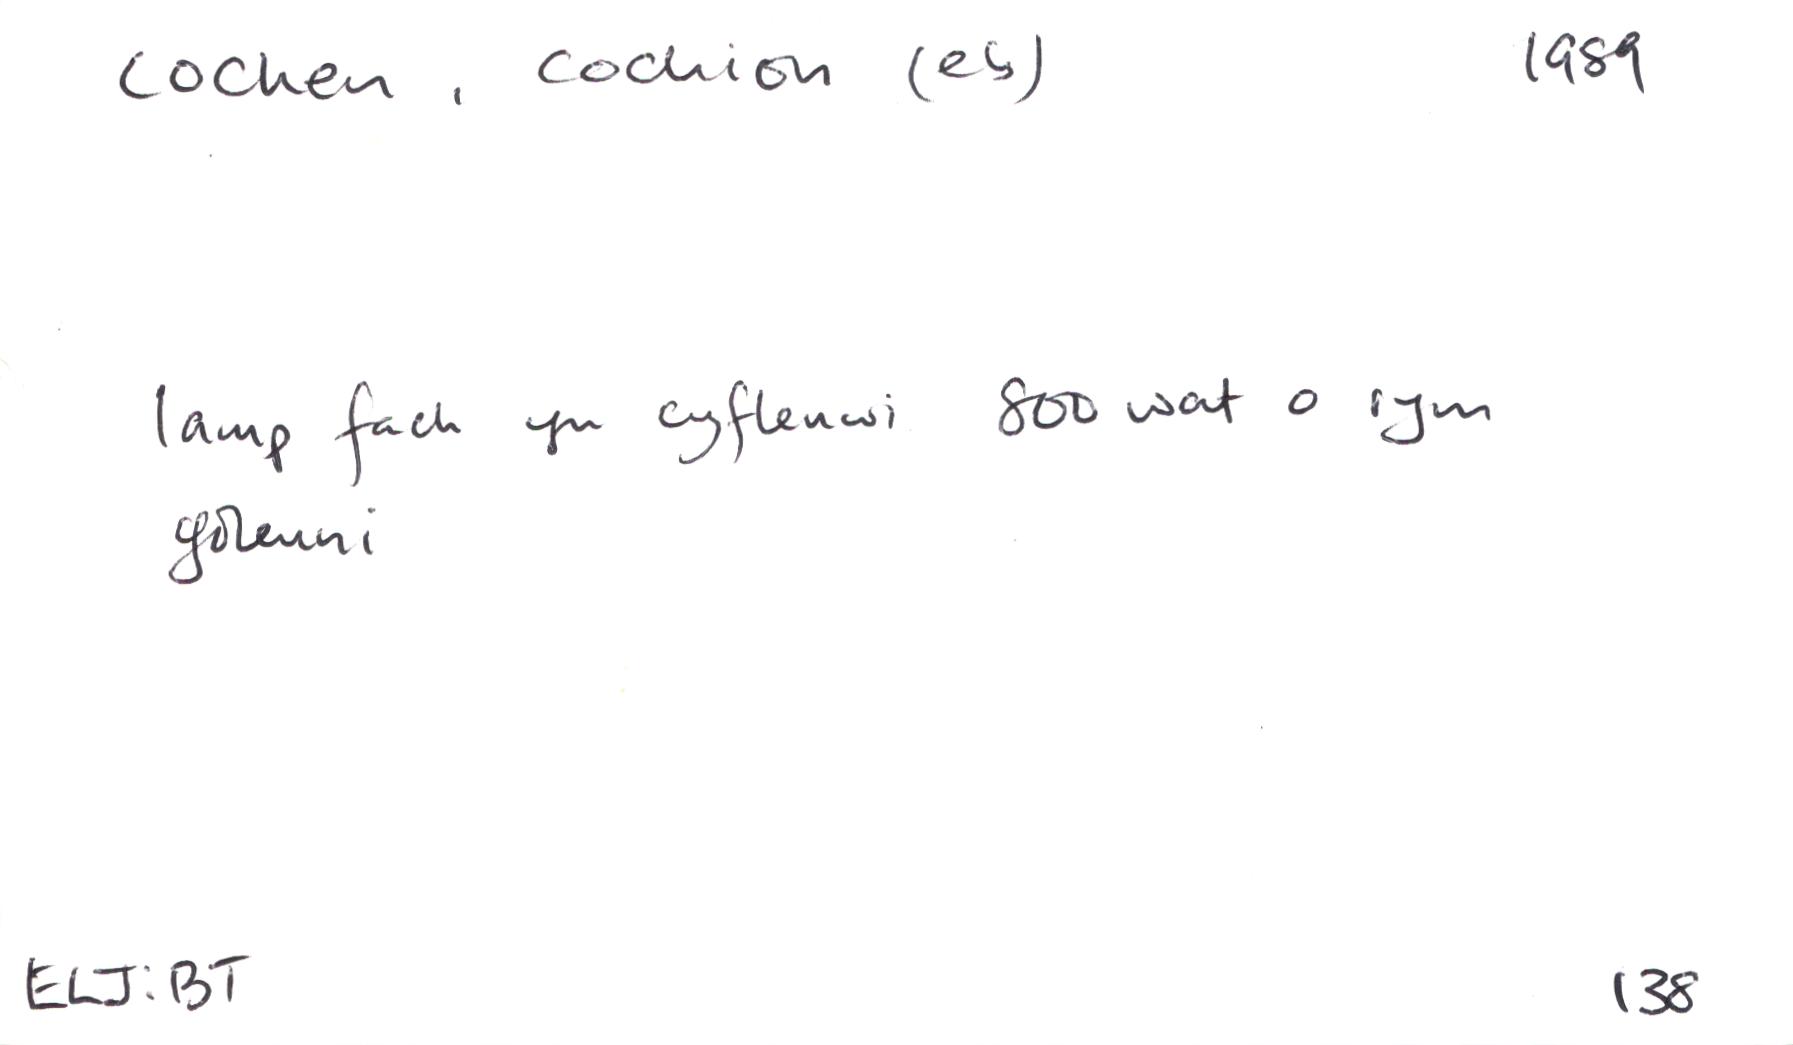 cochen, cochion (eb) 1989
lamp fach yn cyflenwi 800 wat o rym
goleuni
ELJ:BT 138